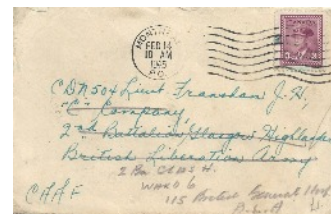 MONTREAL
FEB 14
10 AM
1945
P.Q.
3 3
CDN 504 Lieut Franshan J.H,
"C" Company
2nd Battalion Glasgow Highlanders
British Liberation Army
C.A.A.F
WARD 6
115 British General Hosp